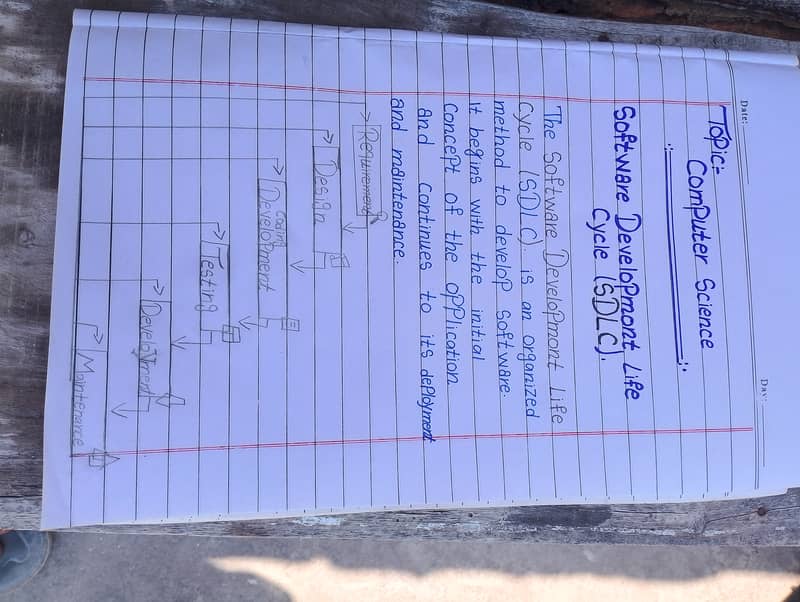 Date:
Day:
Topic:-
Computer Science
Software Development Life
Cycle (SDLC).
The Software Development Life
Cycle (SDLC). is an organized
method to develop software.
It begins with the initial
Concept of the application
and Continues to its deployment
and maintenance.
Requirement
Design
Coding
Development
Testing
Development
Maintenance